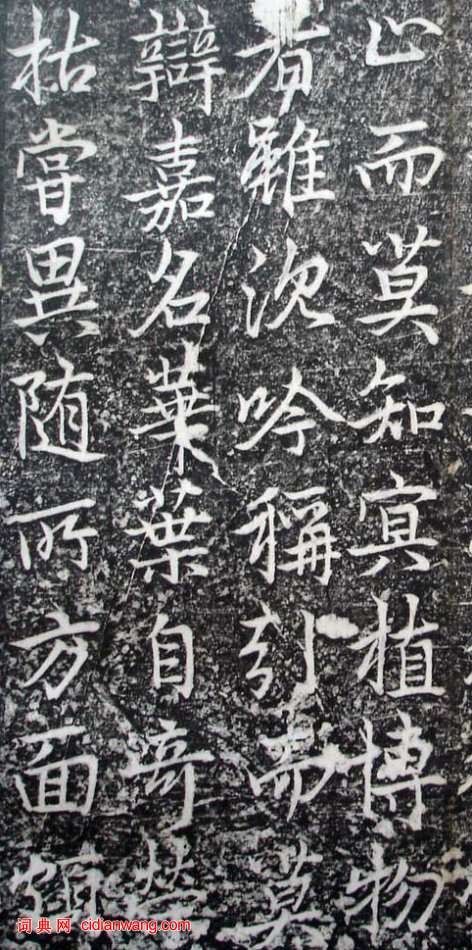 止而莫知冥植博物
者雖沈吟稱引而莫
辯嘉名華葉自奇榮
枯嘗異随所方面頗
词典网 cidianwang.com